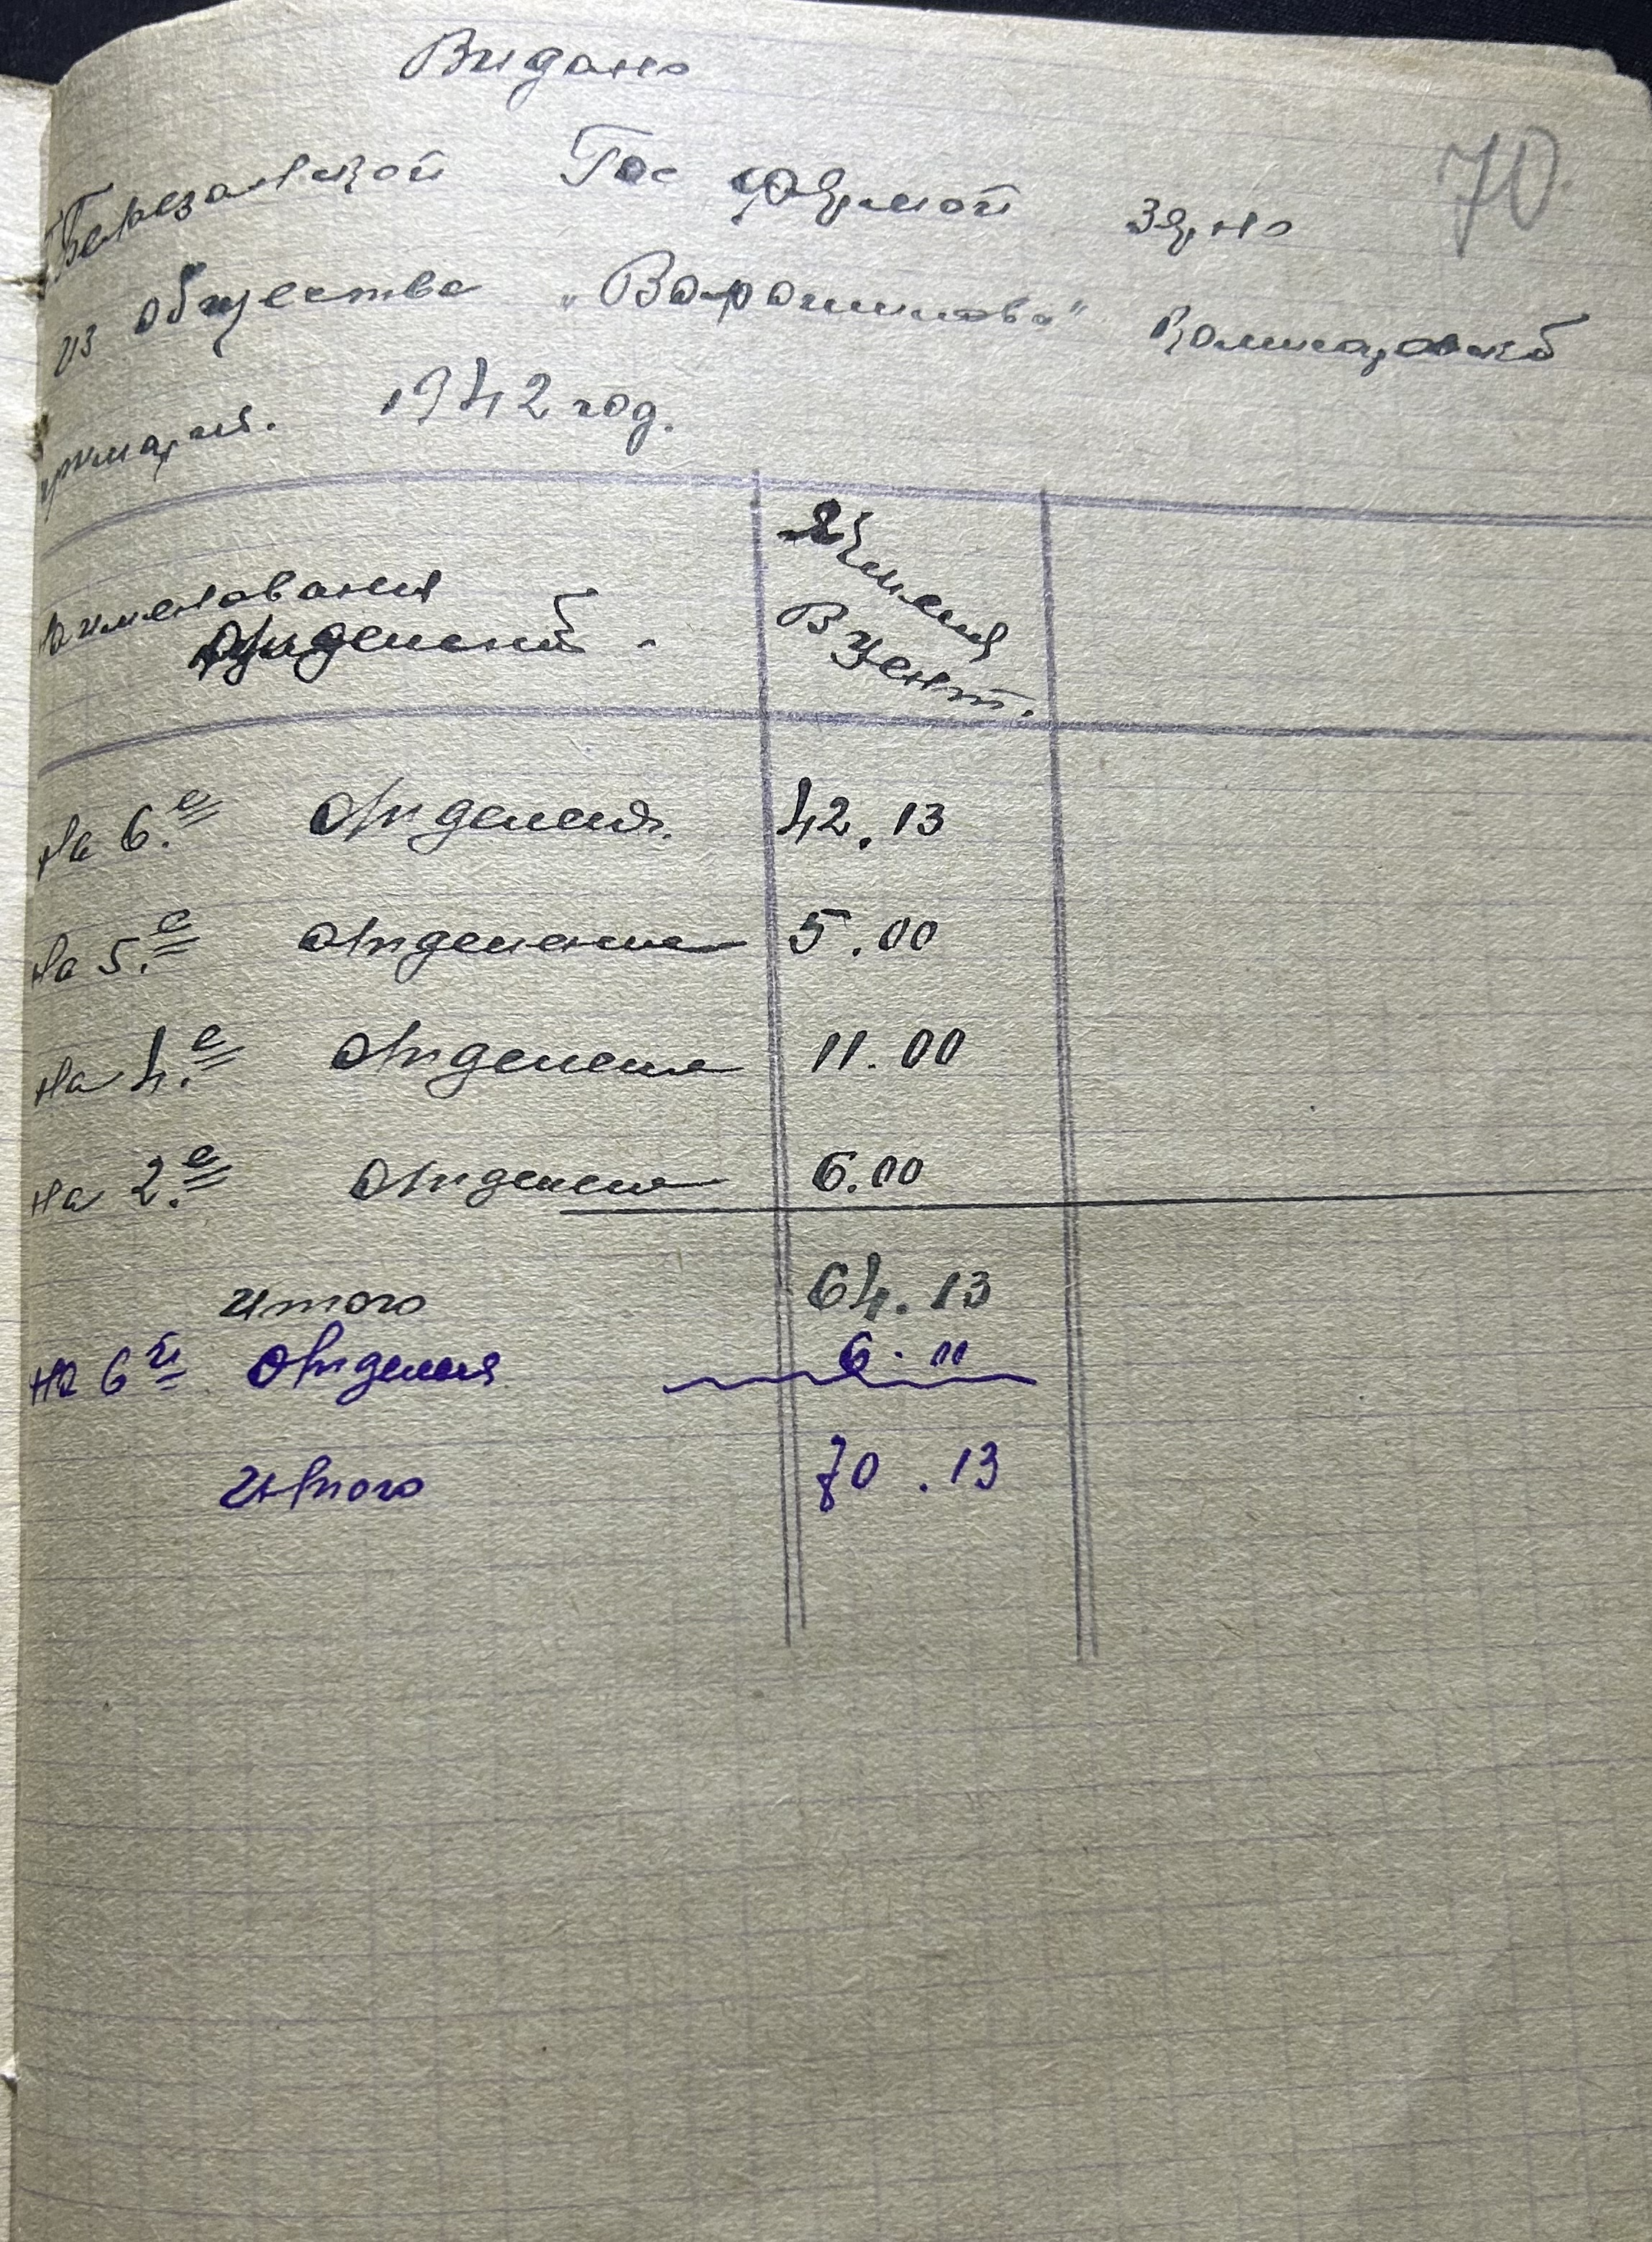 Видано
70.
Березанской Гос фермой зерно
из общества „Ворошилова"
1942 год.
Наименования Ячменя
отделений - В цент.
На 6.е отделения. 42.13
На 5.е отделение 5.00
На 4.е отделения 11.00
На 2.е отделение 6.00
итого 64.13
На 6й отделения 6.00
итого 70.13